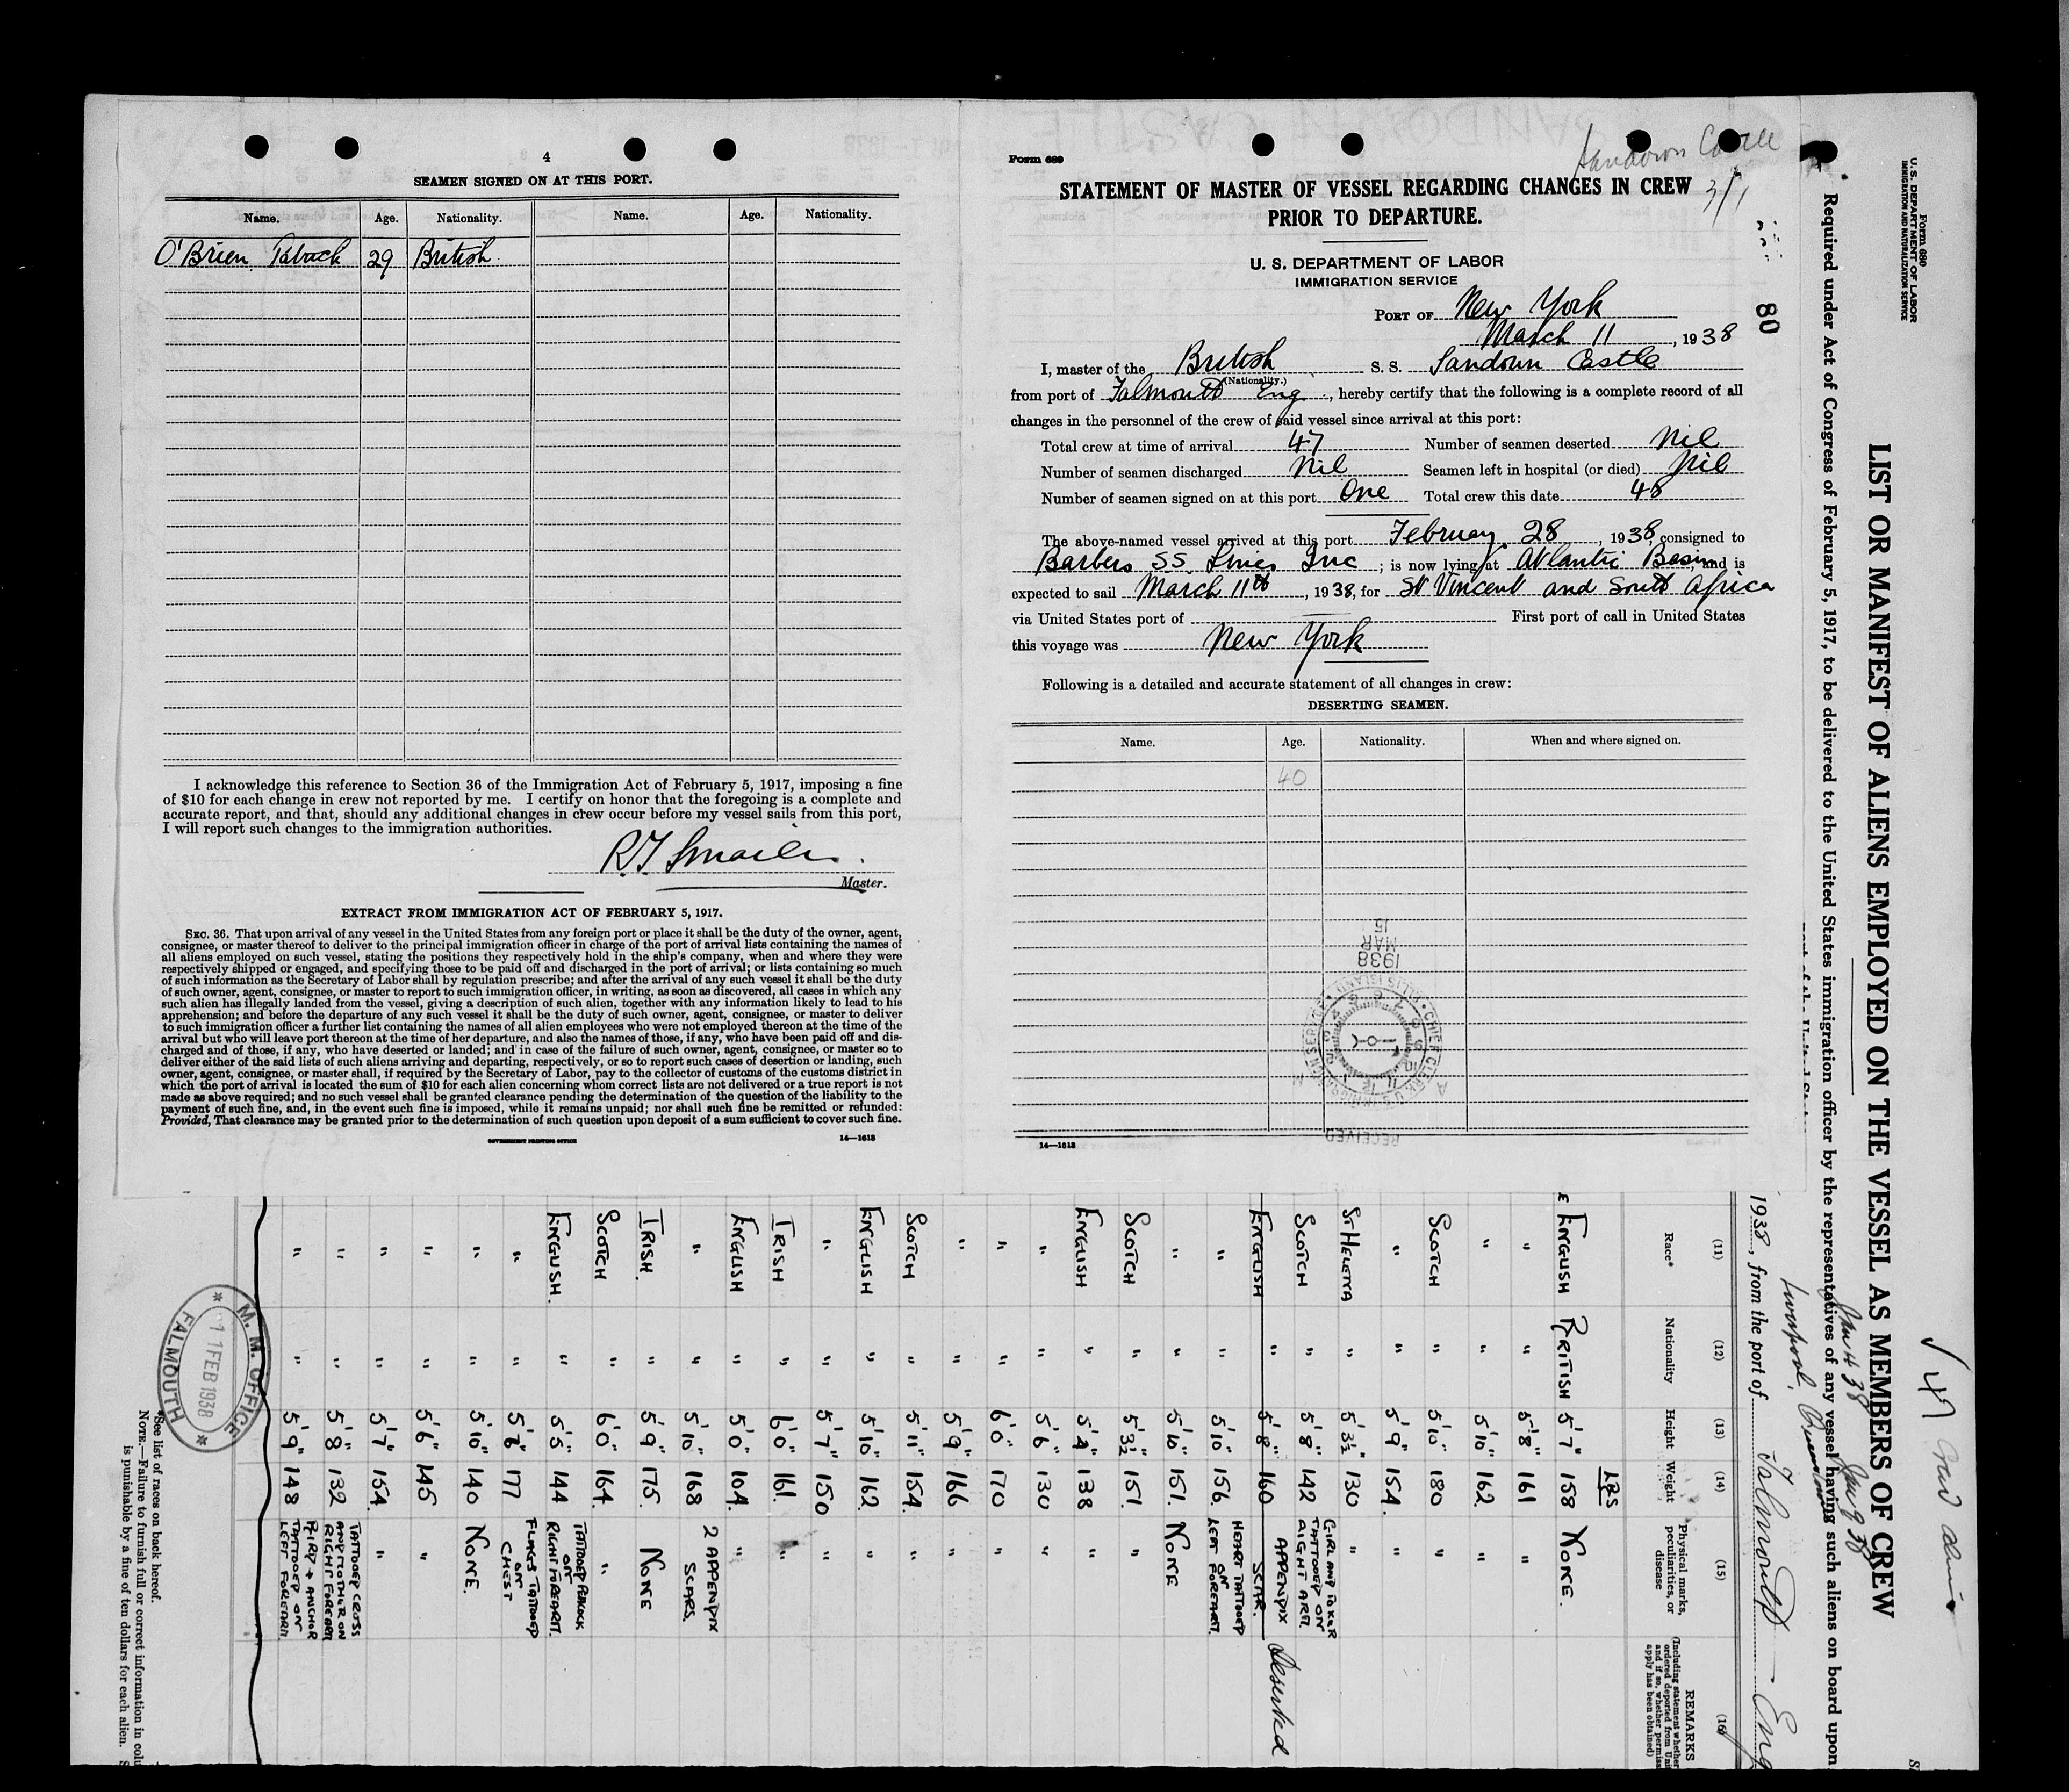 4
SEAMEN SIGNED ON AT THIS PORT.
Name. Age. Nationality. Name. Age. Nationality.
O'Brien 29 British
I acknowledge this reference to Section 36 of the Immigration Act of February 5, 1917, imposing a fine
of $10 for each change in crew not reported by me. I certify on honor that the foregoing is a complete and
accurate report, and that, should any additional changes in crew occur before my vessel sails from this port,
I will report such changes to the immigration authorities.
Master.
EXTRACT FROM IMMIGRATION ACT OF FEBRUARY 5, 1917.
SEC. 36. That upon arrival of any vessel in the United States from any foreign port or place it shall be the duty of the owner, agent,
consignee, or master thereof to deliver to the principal immigration officer in charge of the port of arrival lists containing the names of
all aliens employed on such vessel, stating the positions they respectively hold in the ship's company, when and where they were
respectively shipped or engaged, and specifying those to be paid off and discharged in the port of arrival; or lists containing so much
of such information as the Secretary of Labor shall by regulation prescribe; and after the arrival of any such vessel it shall be the duty
of such owner, agent, consignee, or master to report to such immigration officer, in writing, as soon as discovered, all cases in which any
such alien has illegally landed from the vessel, giving a description of such alien, together with any information likely to lead to his
apprehension; and before the departure of any such vessel it shall be the duty of such owner, agent, consignee, or master to deliver
to such immigration officer a further list containing the names of all alien employees who were not employed thereon at the time of the
arrival but who will leave port thereon at the time of her departure, and also the names of those, if any, who have been paid off and dis-
charged and of those, if any, who have deserted or landed; and in case of the failure of such owner, agent, consignee, or master so to
deliver either of the said lists of such aliens arriving and departing, respectively, or so to report such cases of desertion or landing, such
owner, agent, consignee, or master shall, if required by the Secretary of Labor, pay to the collector of customs of the customs district in
which the port of arrival is located the sum of $10 for each alien concerning whom correct lists are not delivered or a true report is not
made as above required; and no such vessel shall be granted clearance pending the determination of the question of the liability to the
payment of such fine, and, in the event such fine is imposed, while it remains unpaid; nor shall such fine be remitted or refunded:
Provided, That clearance may be granted prior to the determination of such question upon deposit of a sum sufficient to cover such fine.
GOVERNMENT PRINTING OFFICE 14—1613
Form 689
Sandown Castle
3/1
STATEMENT OF MASTER OF VESSEL REGARDING CHANGES IN CREW
PRIOR TO DEPARTURE.
U. S. DEPARTMENT OF LABOR
IMMIGRATION SERVICE
PORT OF New York
March 11, 1938
I, master of the British S. S. Sandown Castle
(Nationality.)
from port of Falmouth Eng, hereby certify that the following is a complete record of all
changes in the personnel of the crew of said vessel since arrival at this port:
Total crew at time of arrival 47 Number of seamen deserted Nil
Number of seamen discharged Nil Seamen left in hospital (or died) Nil
Number of seamen signed on at this port One Total crew this date 48
The above-named vessel arrived at this port February 28, 1938, consigned to
Barbers SS Lines Inc; is now lying at Atlantic Basin, and is
expected to sail March 11th, 1938, for St Vincent and South Africa
via United States port of First port of call in United States
this voyage was New York
Following is a detailed and accurate statement of all changes in crew:
DESERTING SEAMEN.
Name. Age. Nationality. When and where signed on.
40
RECEIVED
1938 MAR 15
14—1613
80
Form 680
U. S. DEPARTMENT OF LABOR
IMMIGRATION AND NATURALIZATION SERVICE
LIST OR MANIFEST OF ALIENS EMPLOYED ON THE VESSEL AS MEMBERS OF CREW
Required under Act of Congress of February 5, 1917, to be delivered to the United States immigration officer by the representatives of any vessel having such aliens on board upon
1938, from the port of Falmouth - Eng
Liverpool, Jan 4 38 Jan 9 38
(11) (12) (13) (14) (15) (16)
Race* Nationality Height Weight Physical marks, peculiarities, or disease REMARKS
LBS
ENGLISH BRITISH 5'7" 158 NONE.
" " 5'8" 161 "
" " 5'10" 162. "
SCOTCH " 5'10" 180 "
" " 5'9" 154. "
ST HELENA " 5'3½" 130 "
SCOTCH " 5'8" 142 GIRL AND JOKER TATTOOED ON RIGHT ARM.
ENGLISH " 5'8" 160 APPENDIX SCAR. Deserted
" " 5'10" 156. HEART TATTOOED ON LEFT FOREARM.
" " 5'10" 151. NONE
SCOTCH " 5'3½" 151. "
ENGLISH " 5'4" 138 "
" " 5'6" 130 "
" " 6'0" 170 "
" " 5'9" 166 "
SCOTCH " 5'11" 154. "
ENGLISH " 5'10" 162. "
" " 5'7" 150 "
IRISH " 6'0" 161. "
ENGLISH " 5'0" 104. "
" " 5'10" 168 2 APPENDIX SCARS.
IRISH. " 5'9" 175. NONE
SCOTCH " 6'0" 164. "
ENGLISH. " 5'5" 144 TATTOOED PEACOCK ON RIGHT FOREARM.
" " 5'8" 177 FLAGS TATTOOED ON CHEST
" " 5'10" 140 NONE.
" " 5'6" 145 "
" " 5'7" 154. "
" " 5'8" 132 TATTOOED CROSS AND MOTHER ON RIGHT FOREARM
" " 5'9" 148 BIRD + ANCHOR TATTOOED ON LEFT FOREARM.
M. M. OFFICE
11 FEB 1938
FALMOUTH
*See list of races on back hereof.
NOTE.—Failure to furnish full or correct information in colu
is punishable by a fine of ten dollars for each alien.